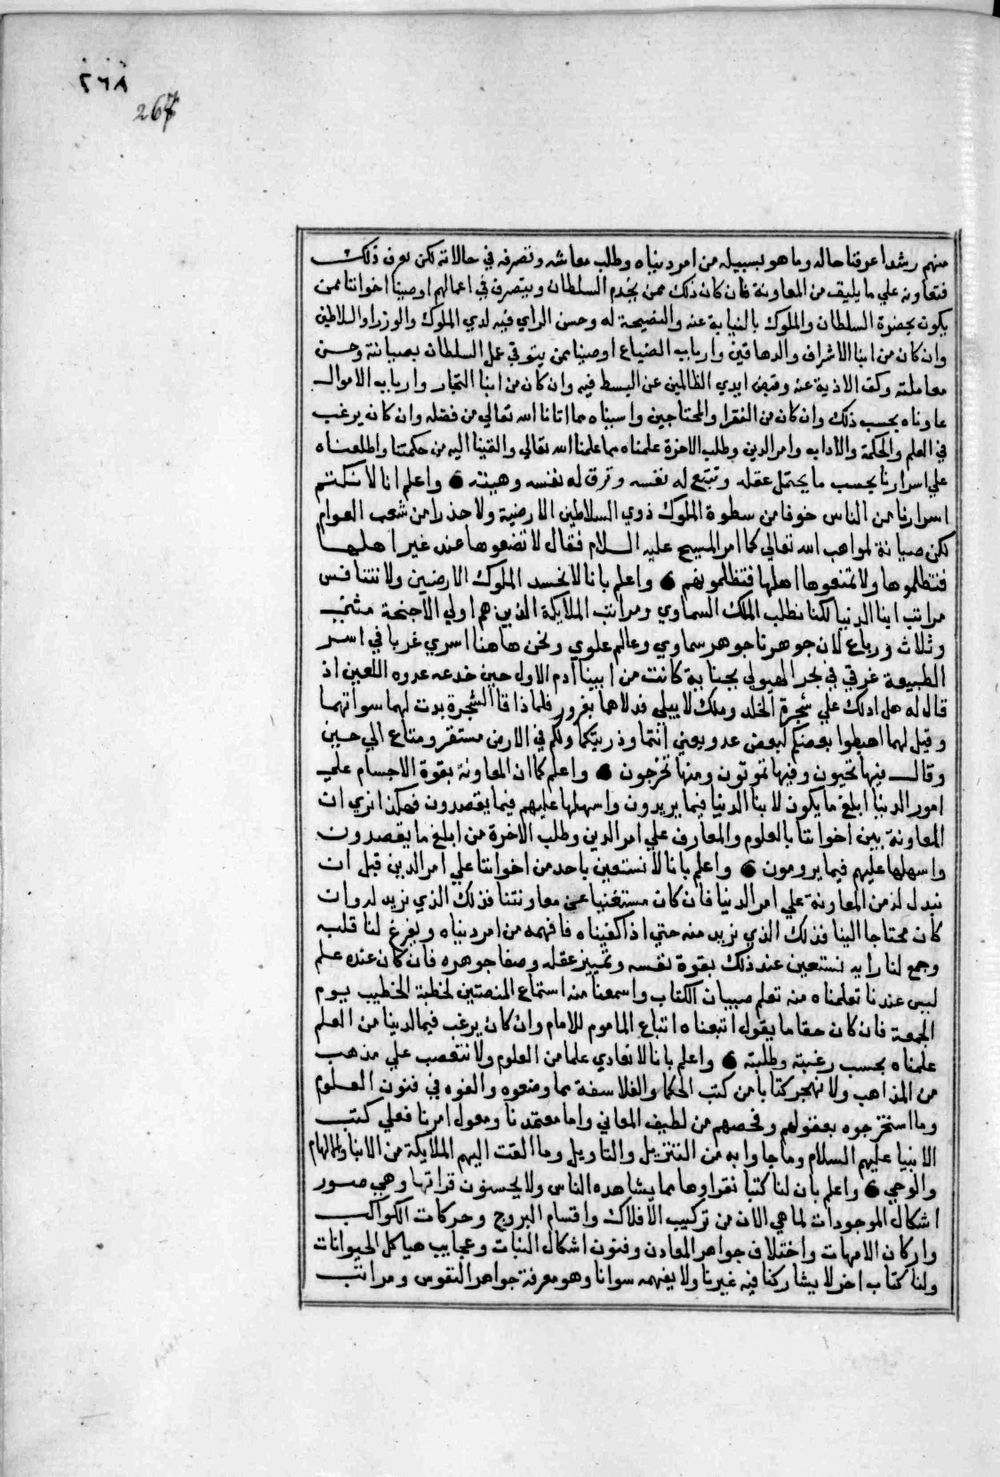 ٢٦٨
267
منهم رشدا عرفنا حاله وما هو بسبيله من امر دنياه وطلب معاشه وتصرفه في حالاته لكن نعرف ذلك
فنعاونه علي ما يليق من المعاونة فان كان ذلك ممن يخدم السلطان ويتصرف في اعمالهم اوصينا اخواننا ممن
يكون بحضرة السلطان والملوك بالنيابة عنه والنصيحة له وحسن الراي فيه لدي الملوك والوزرا والسلاطين
وان كان من ابنا الاشراف والدهاقين وارباب الضياع اوصينا من يتوقي عمل السلطان بصيانته وحسن
معاملته وكف الاذية عنه وقبض ايدي الظالمين عن البسط فيه وان كان من ابنا التجار وارباب الاموال
عاوناه بحسب ذلك وان كان من الفقرا والمحتاجين واسيناه مما اتانا الله تعالي من فضله وان كان يرغب
في العلم والحكمة والاداب وامر الدين وطلب الاخرة علمناه مما علمنا الله تعالي والقينا اليه من حكمتنا واطلعناه
علي اسرارنا بحسب ما يحتمل عقله وتتسع له نفسه وترق له نفسه وهيئته واعلم انا لا نكتم
اسرارنا من الناس خوفا من سطوة الملوك ذوي السلاطين الارضية ولا حذرا من شعب العوام
لكن صيانة لمواهب الله تعالي كما امر المسيح عليه السلام فقال لا تضعوها عند غير اهلها
فتظلموها ولا تمنعوها اهلها فتظلموهم واعلم بانا لا نحسد الملوك الارضيين ولا نتنافس
مراتب ابنا الدنيا لكنا نطلب الملك السماوي ومراتب الملايكة الذين هم اولي الاجنحة مثني
وثلاث ورباع لان جوهرنا جوهر سماوي وعالم علوي ونحن هاهنا اسري غربا في اسر
الطبيعة غرقي في بحر الهيولي بجناية كانت من ابينا ادم الاول حين خدعه عدوه اللعين اذ
قال له هل ادلك علي شجرة الخلد وملك لا يبلي فدلاهما بغرور فلما ذاقا الشجرة بدت لهما سواتهما
وقيل لهما اهبطوا بعضكم لبعض عدو يعني انتما وذريتكما ولكم في الارض مستقر ومتاع الي حين
وقال فيها تحيون وفيها تموتون ومنها تخرجون واعلم كما ان المعاونة بقوة الاجسام علي
امور الدنيا ابلغ ما يكون لابنا الدنيا فيما يريدون واسهلها عليهم فيما يقصدون فهكذا نري ان
المعاونة بين اخواننا بالعلوم والمعارف علي امر الدين وطلب الاخرة من ابلغ ما يقصدون
واسهلها عليهم فيما يرومون واعلم بانا لا نستعين باحد من اخواننا علي امر الدين قبل ان
نبدل له من المعاونة علي امر الدنيا فان كان مستغنيا عن معاونتنا فذلك الذي نريد له وان
كان محتاجا الينا فذلك الذي نريد منه حتي اذا كفيناه ما فهمه من امر دنياه ويفرغ لنا قلبه
وجمع لنا رايه نستعين عند ذلك بقوة نفسه وتمييز عقله وصفا جوهره فان كان عنده علم
ليس عندنا تعلمناه منه تعلم صبيان الكتاب واسمعنا منه استماع المنصتين لخطبة الخطيب يوم
الجمعة فان كان حقا ما يقول اتبعناه اتباع الماموم للامام وان كان يرغب فيما لدينا من العلم
علمناه بحسب رغبته وطلبته واعلم بانا لا نعادي علما من العلوم ولا نتعصب علي مذهب
من المذاهب ولا نهجر كتابا من كتب الحكما والفلاسفة مما وضعوه والفوه في فنون العلوم
وما استخرجوه بعقولهم وفحصهم من لطيف المعاني واما معتمدنا ومعول امرنا فعلي كتب
الانبيا عليهم السلام وما جاوا به من التنزيل والتاويل وما القت اليهم الملايكة من الانبا والالهام
والوحي واعلم بان لنا كتبا نقراوها مما يشاهده الناس ولا يحسنون قراتها وهي صور
اشكال الموجودات لما هي الان من تركيب الافلاك واقسام البروج وحركات الكواكب
واركان الامهات واختلاف جواهر المعادن وفنون اشكال النبات وعجايب هياكل الحيوانات
ولنا كتاب اخر لا يشاركنا فيه غيرنا ولا يفهمه سوانا وهو معرفة جواهر النفوس ومراتب